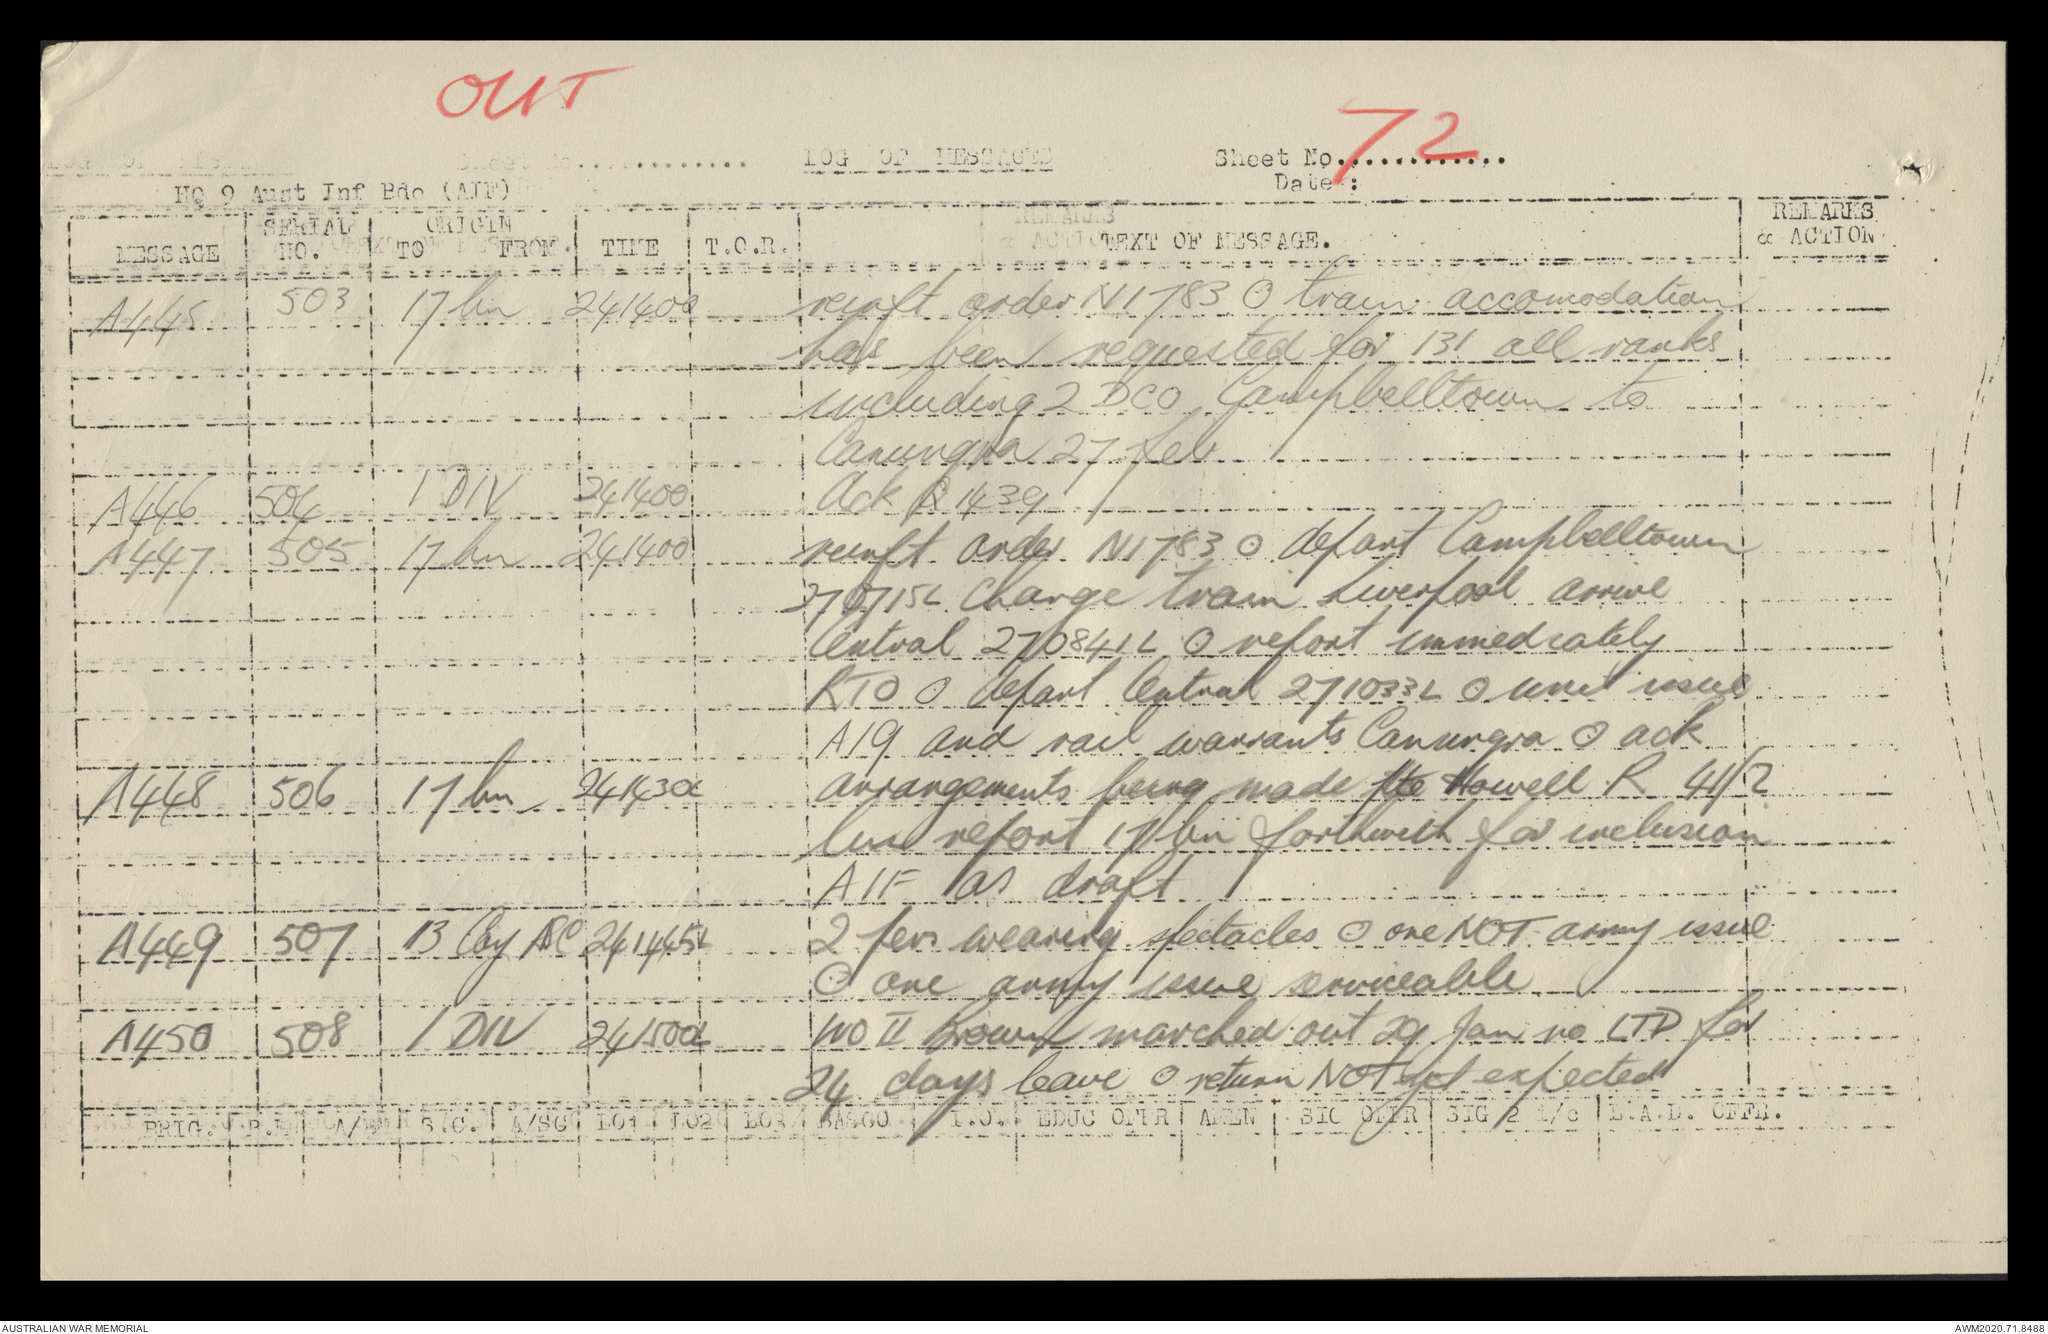 OUT
72
LOG OF MESSAGES
Sheet No.............
Date :
HQ 9 Aust Inf Bde (AIF)
MESSAGE SERIAL NO. ORIGIN TO FROM. TIME T.O.R. TEXT OF MESSAGE. REMARKS & ACTION
A445 503 17 bn 241400 reinft order N1783 ⊙ train accomodation
has been requested for 131 all ranks
including 2 DCO Campbelltown to
Canungra 27 feb
A446 504 1 DIV 241400 Ack Q 1439
A447 505 17 bn 241400 reinft order N1783 ⊙ depart Campbelltown
270715L Change train Liverpool arrive
Central 270841L ⊙ report immediately
RTO ⊙ depart Central 271033L ⊙ unit issue
A19 and rail warrants Canungra ⊙ ack
A448 506 17 bn 241430L arrangements being made pte Howell R 41/2
report 17 bn forthwith for inclusion
AIF as draft
A449 507 13 Coy ASC 241445L 2 pers wearing spectacles ⊙ one NOT army issue
⊙ one army issue serviceable
A450 508 1 DIV 241500L WO II Brown marched out 29 Jan LTD for
24 days leave ⊙ return NOT yet expected
BRIG. B.M A/BM S.C. A/SC LO1 LO2 LO3 BASCO I.O. EDUC OFFR AMEN SIG OFFR SIG 2 i/c L.A.D. OFFR.
AUSTRALIAN WAR MEMORIAL
AWM2020.71.8488